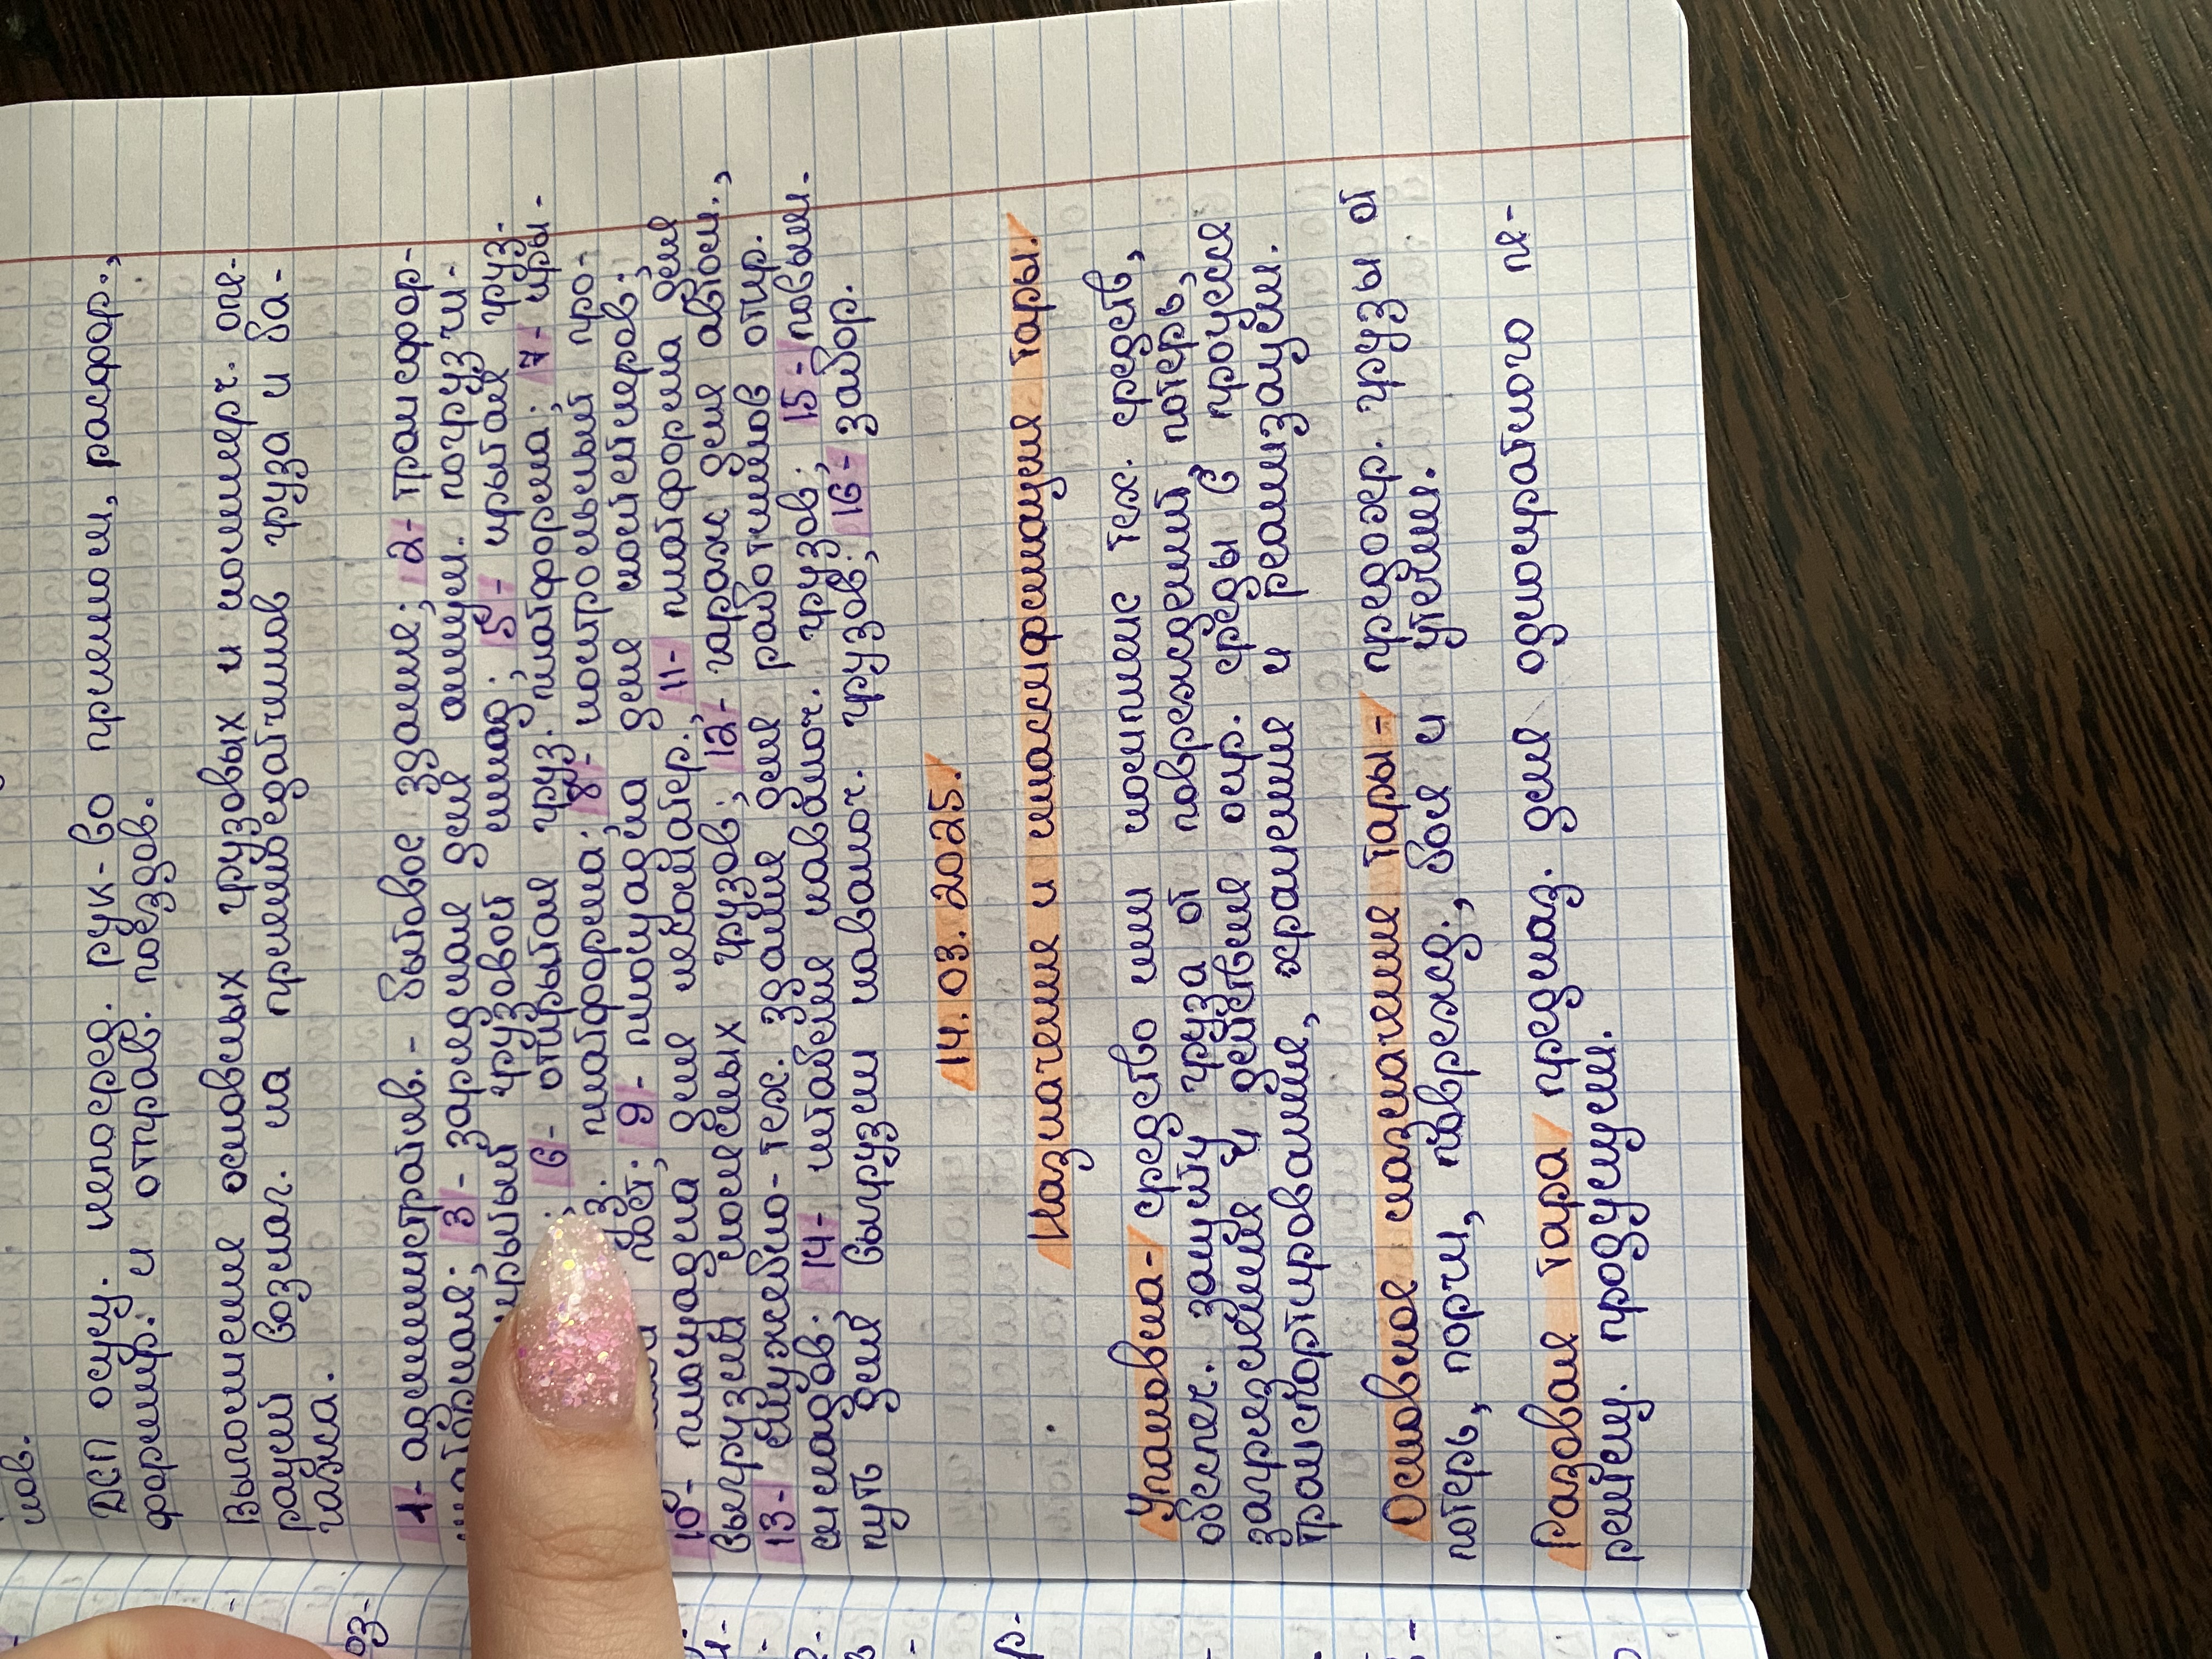 нов.
ДСП осущ. непосред. рук-во приемом, расфор.,
формир. и отправ. поездов.
Выполнение основных грузовых и коммерч. опе-
раций возлаг. на приемосдатчиков груза и ба-
гажа.
1- административ.- бытовое здание; 2- трансфор-
3- зарядная для аккум. погрузчи-
крытый грузовой склад; 5- крытая груз.
6- открытая груз. платформа; 7- кры-
платформа; 8- контрольный про-
пост; 9- площадка для контейнеров;
10- площадка для лесоматер.; 11- платформа для
выгрузки колесных грузов; 12- гараж для автом.,
13- служебно-тех. здание для работников откр.
складов; 14- штабеля навалоч. грузов; 15- повыш.
путь для выгрузки навалоч. грузов; 16- забор.
14. 03. 2025.
Назначение и классификация тары.
Упаковка- средство или комплекс тех. средств,
обеспеч. защиту груза от повреждений, потерь,
загрязнения и действия окр. среды с процесся
транспортирования, хранения и реализации.
Основное назначение тары- предохр. грузы от
потерь, порчи, поврежд., боя и утечки.
Разовая тара предназ. для однократного пе-
ремещ. продукции.